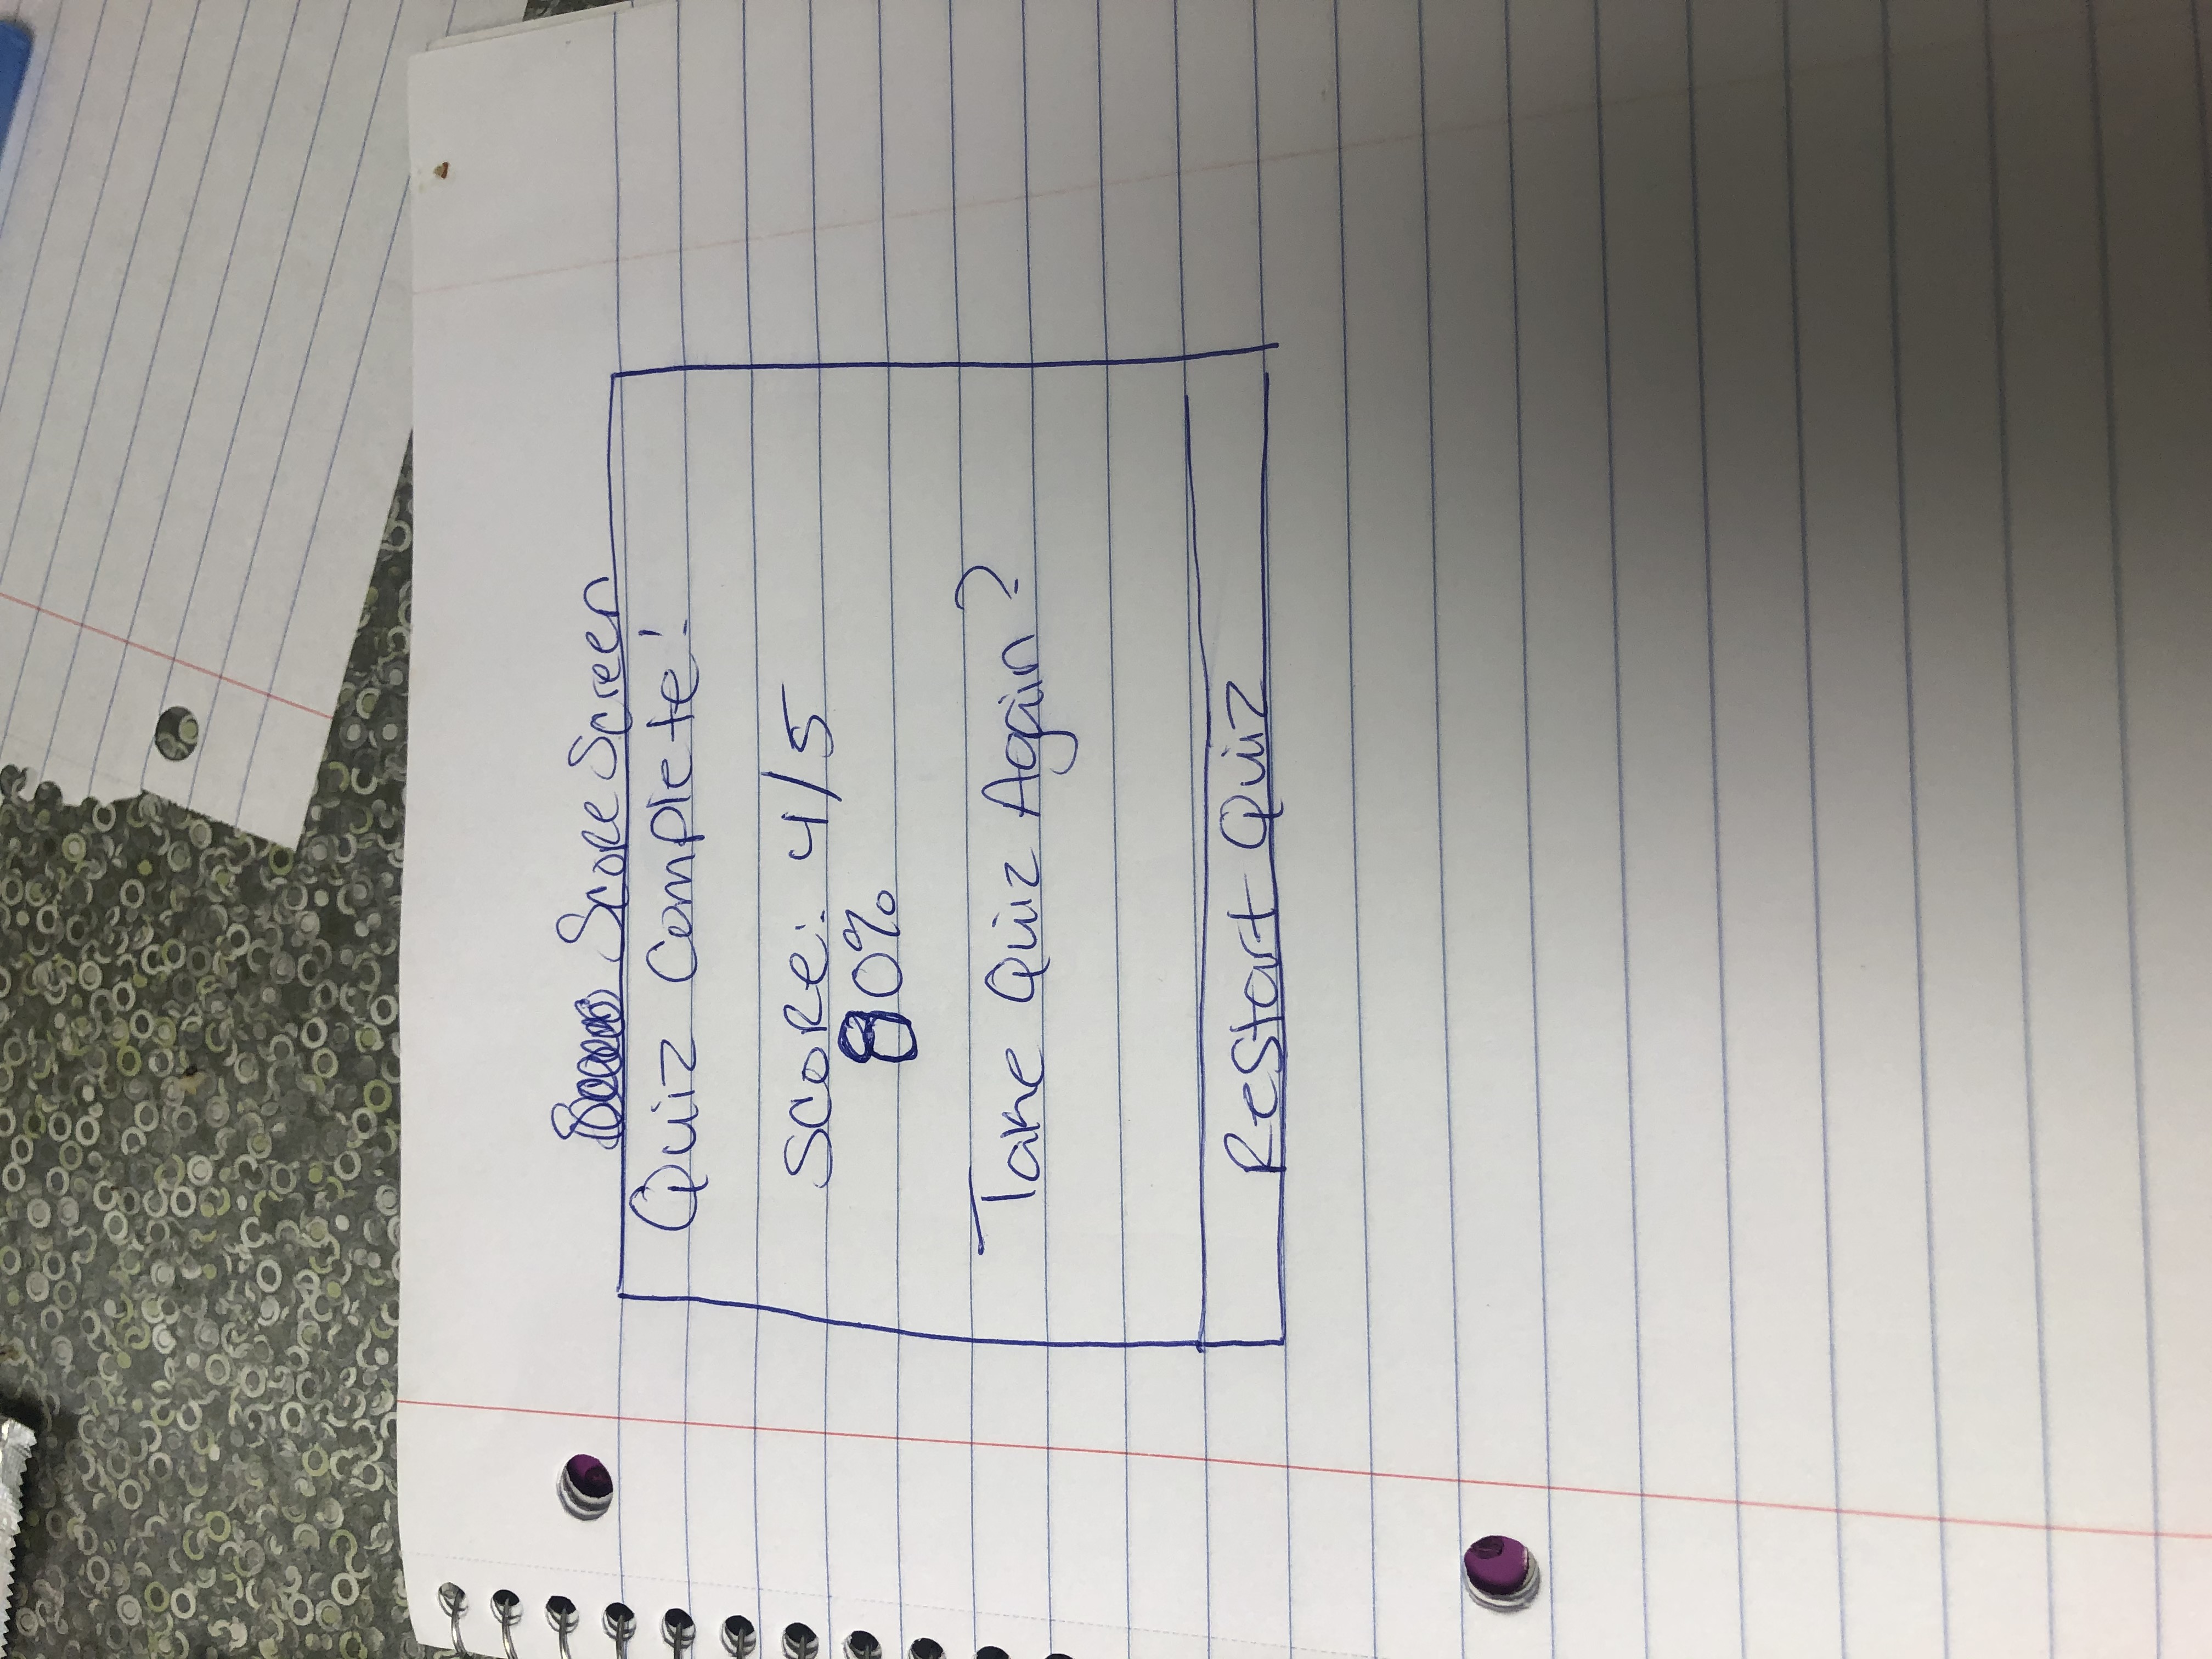 Score Screen
Quiz Complete!
Score: 4/5
80%
Take Quiz Again?
Restart Quiz